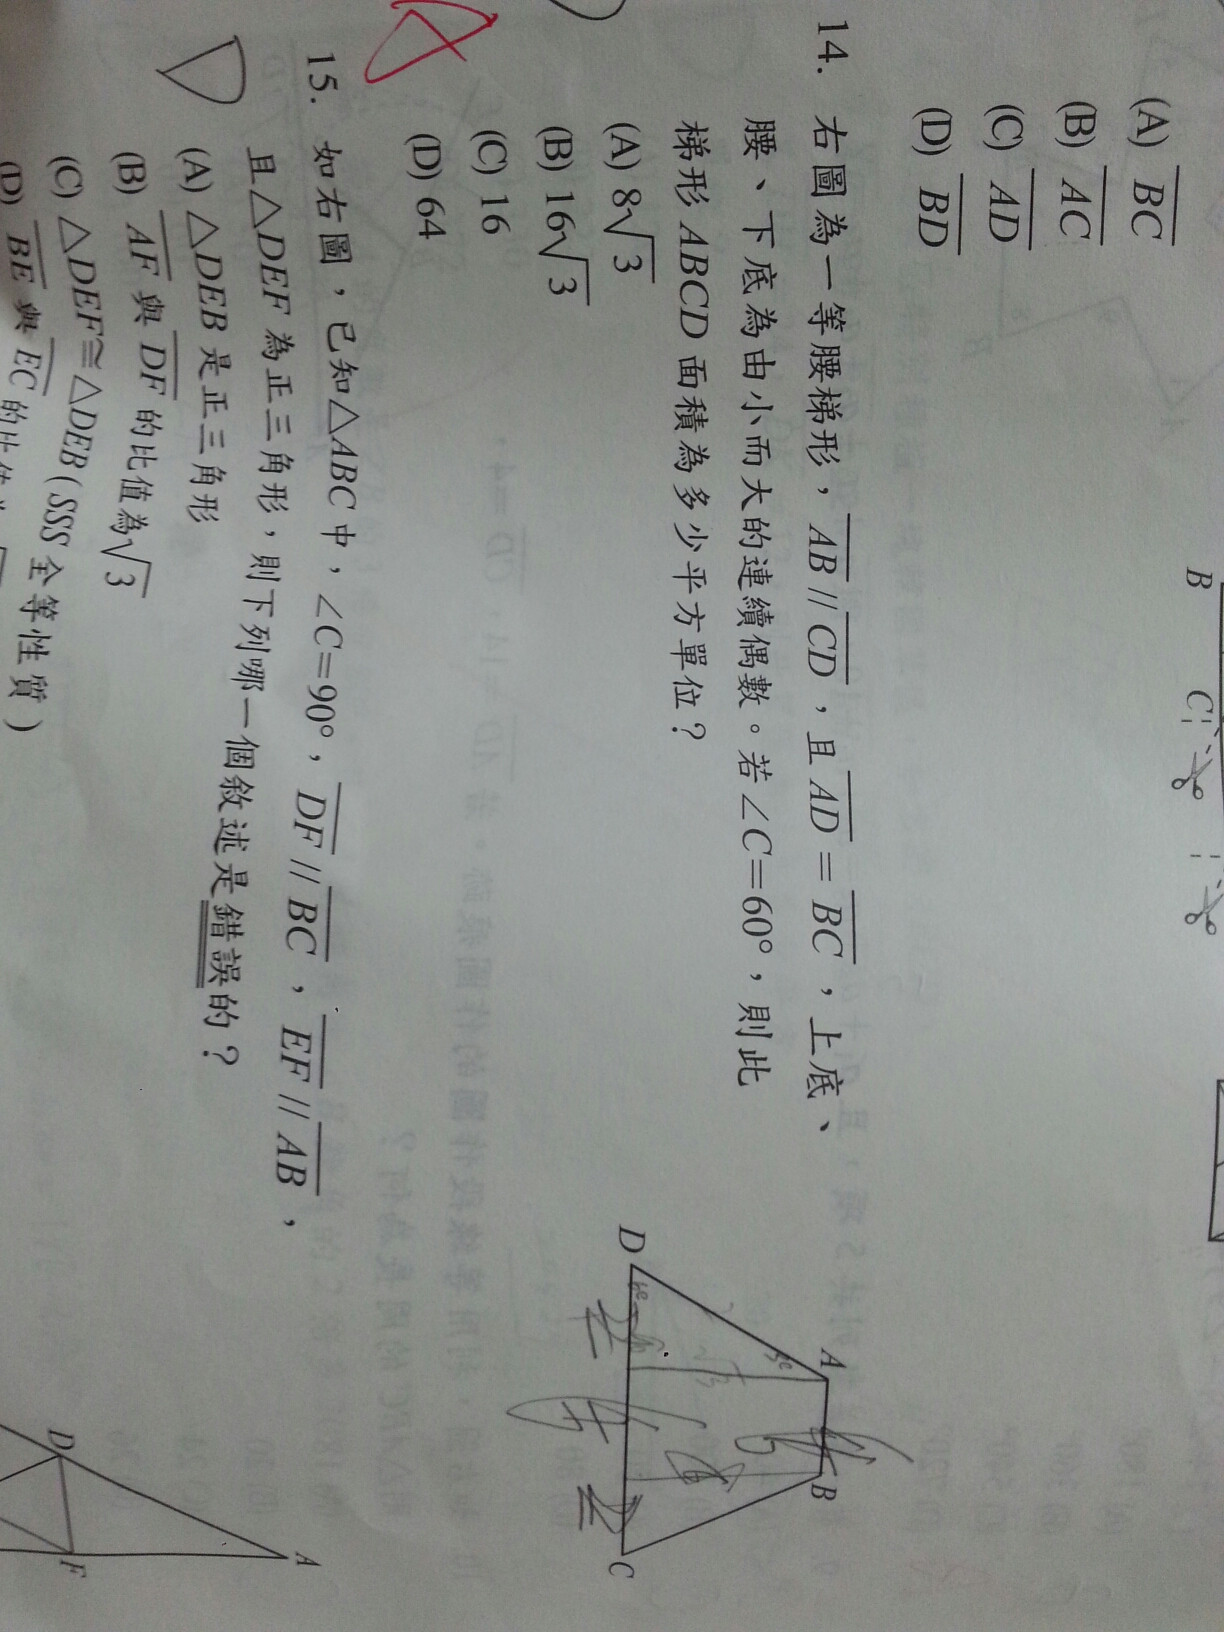 (A) BC
(B) AC
(C) AD
(D) BD
B
C
14. 右圖為一等腰梯形，AB // CD，且 AD = BC，上底、
腰、下底為由小而大的連續偶數。若∠C=60°，則此
梯形 ABCD 面積為多少平方單位？
(A) 8√3
(B) 16√3
(C) 16
(D) 64
A
B
D
C
15. 如右圖，已知△ABC 中，∠C=90°，DF // BC，EF // AB，
且△DEF 為正三角形，則下列哪一個敘述是錯誤的？
(A) △DEB 是正三角形
(B) AF 與 DF 的比值為√3
(C) △DEF≅△DEB (SSS 全等性質)
(D) BE 與 EC 的比值
A
D
F